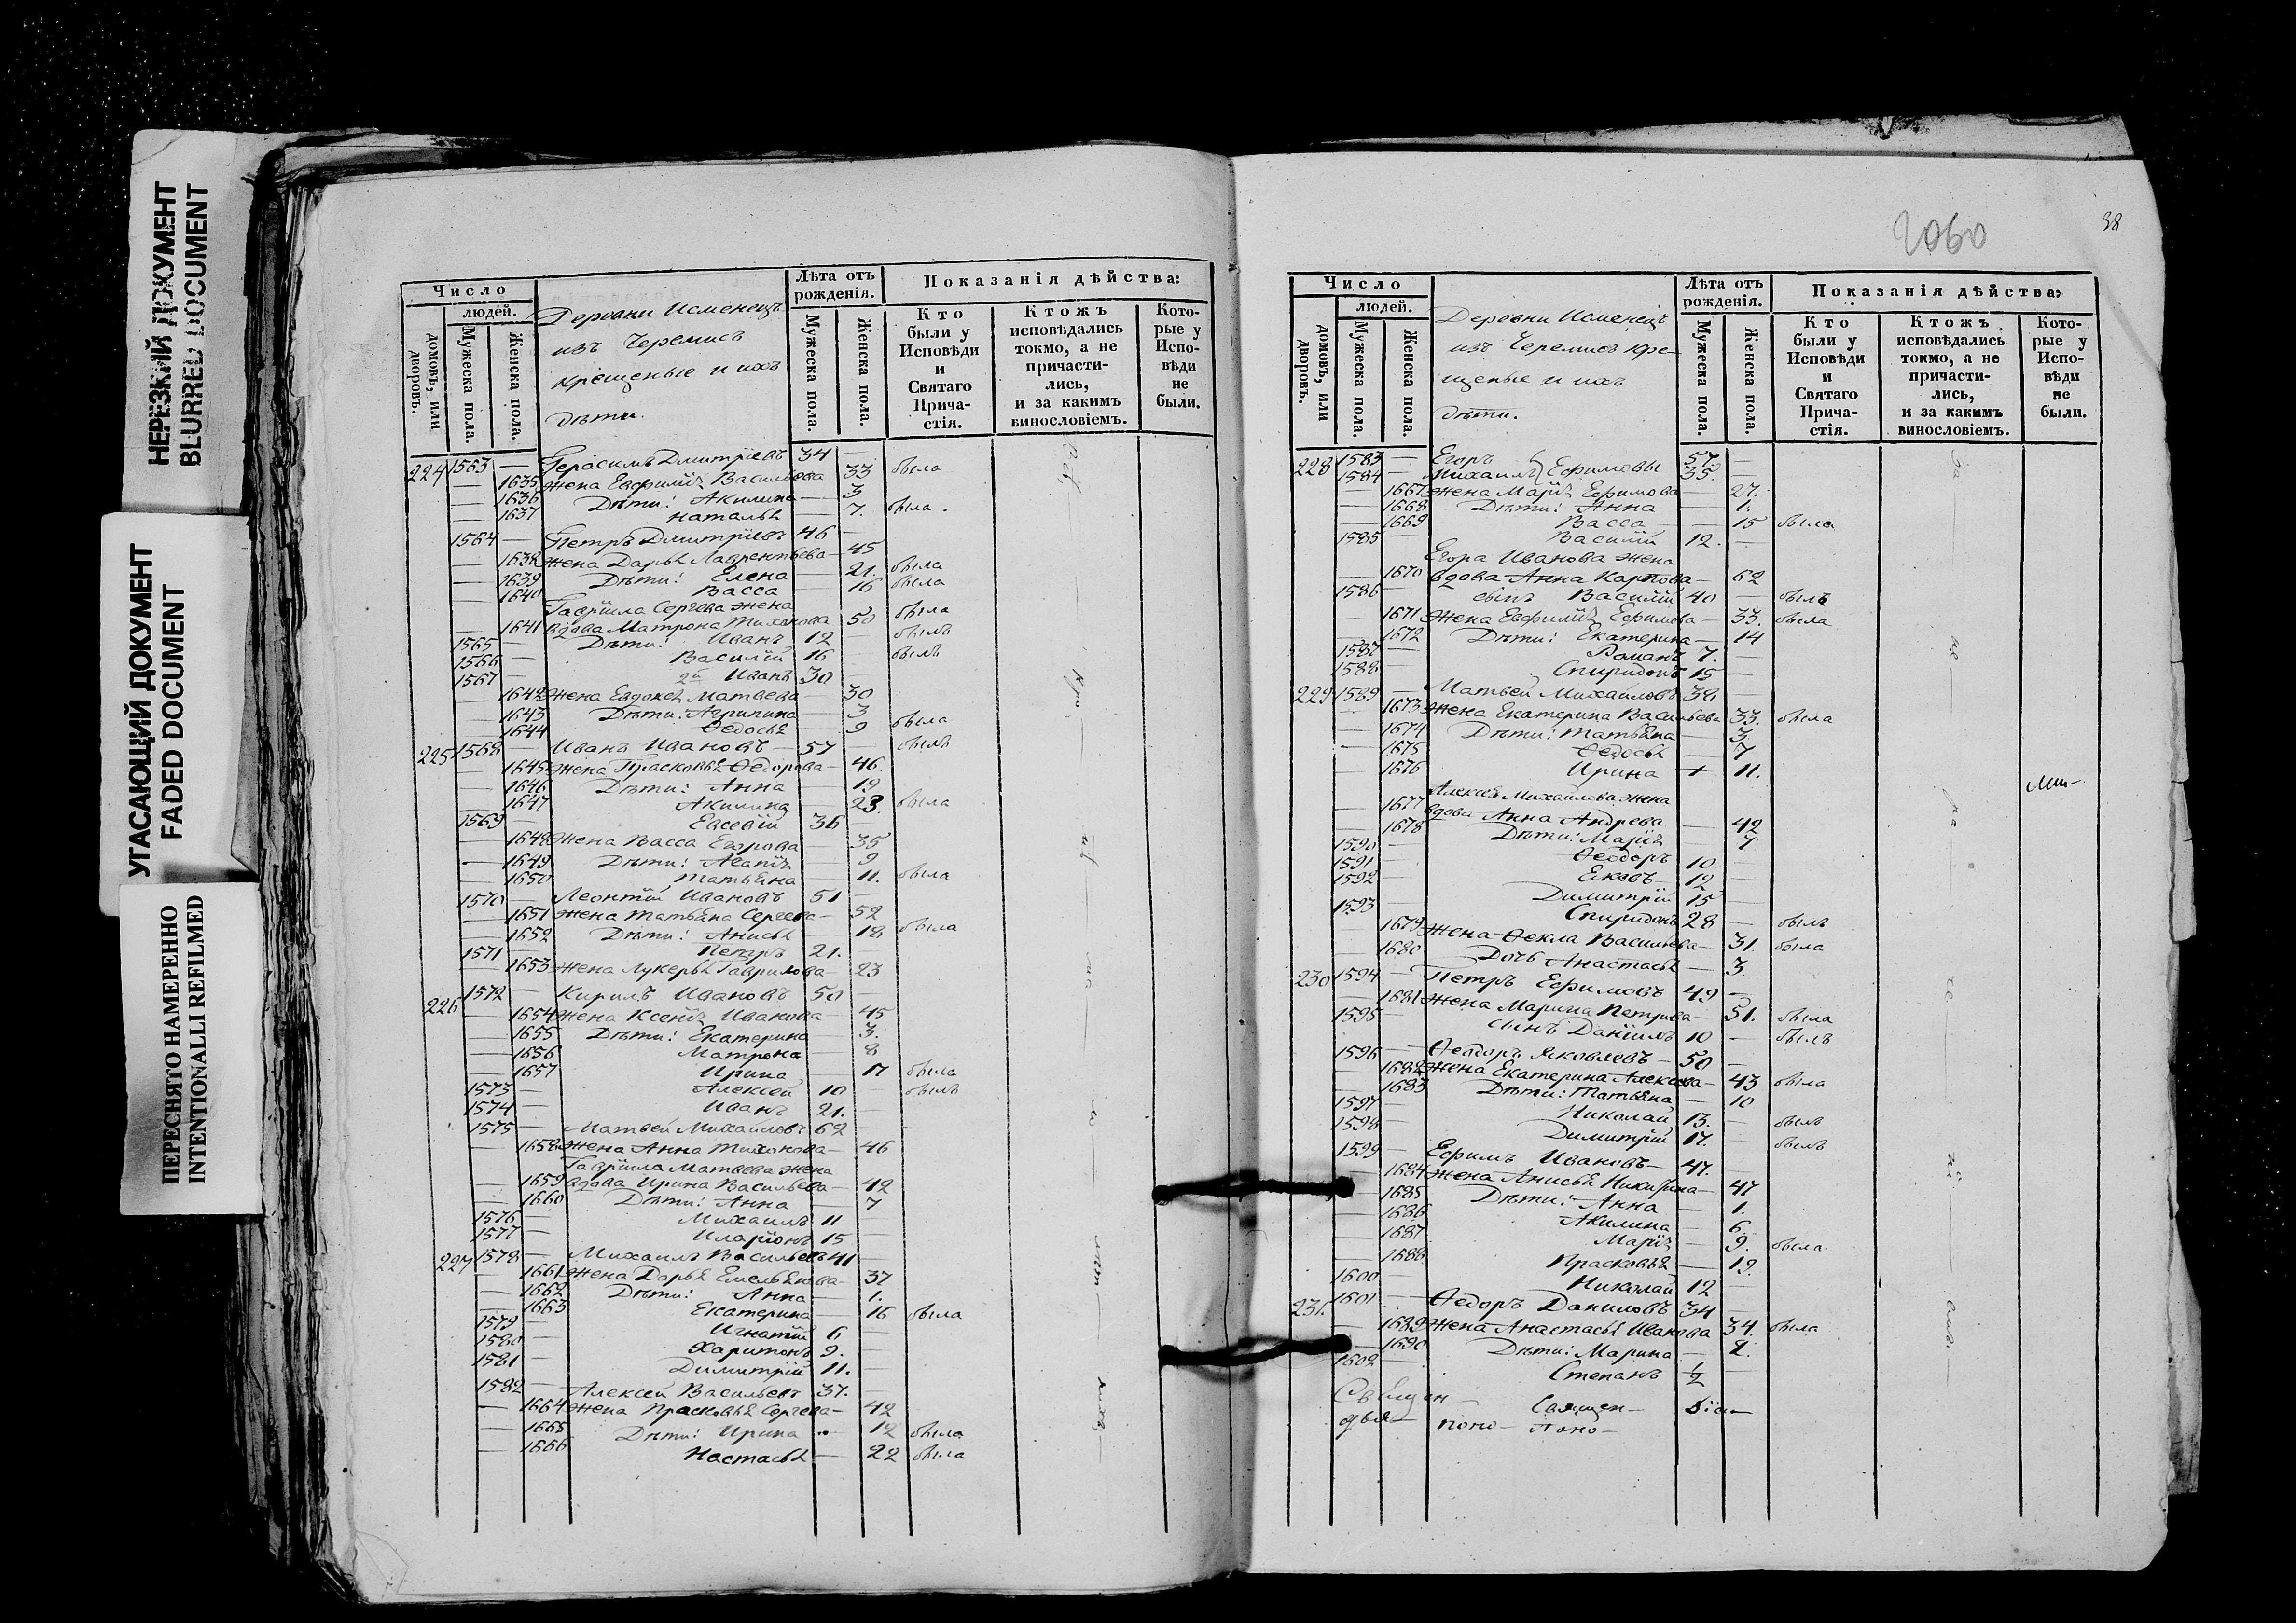 НЕРЕЗКИЙ ДОКУМЕНТ
BLURRED DOCUMENT
УГАСАЮЩИЙ ДОКУМЕНТ
FADED DOCUMENT
ПЕРЕСНЯТО НАМЕРЕННО
INTENTIONALLI REFILMED
Число
людей.
домовъ, или дворовъ.
Мужеска пола.
Женска пола.
Деревни Исменецъ
изъ Черемисъ
крещеные и ихъ
дѣти.
Лѣта отъ рожденія.
Мужеска пола.
Женска пола.
Показанія дѣйства:
Кто были у Исповѣди и Святаго Прича-стія.
Ктожъ исповѣдались токмо, а не причасти-лись, и за какимъ винословіемъ.
Кото-рые у Испо-вѣди не были.
224 1563 — Герасимъ Дмитріевъ 34 —
— 1635 жена Евфимія Васильева 33 была
— 1636 Дѣти: Акилина — 3
— 1637 Наталья — 7. была.
1564 — Петръ Дмитріевъ 46 —
— 1638 жена Дарья Лаврентьева — 45
— 1639 Дѣти: Елена — 21. была
— 1640 Васса — 16 была
Гавріила Сергева жена
— 1641 вдова Матрона Тихонова 50 была
1565 — Дѣти: Иванъ 12 — былъ
1566 — Василій 16 — былъ
1567 — 2й Иванъ 30
— 1642 жена Евдокея Матвева — 30
— 1643 Дѣти: Агрипина 3
— 1644 Федосья 9 была
225 1568 — Иванъ Ивановъ — 57 — былъ
— 1645 жена Прасковья Ѳедорова — 46.
— 1646 Дѣти: Анна — 19
— 1647 Акилина — 23. была
1569 — Евсевій 36 —
— 1648 жена Васса Егорова — 35
— 1649 Дѣти: Агапія — 9
— 1650 Татьяна — 11. была
1570 — Леонтій Ивановъ 51
— 1651 жена Татьяна Сергева — 52
— 1652 Дѣти: Анисья — 18 была
1571 — Петръ 21.
— 1653 жена Лукерья Гаврилова — 23
226 1572 — Кирилъ Ивановъ 50 —
— 1654 жена Ксенія Иванова — 45
— 1655 Дѣти: Екатерина — 3.
— 1656 Матрона — 8
— 1657 Ирина — 17 была
1573 — Алексей 10 былъ
1574 — Иванъ 21. —
1575 — Матвей Михайловъ 62
— 1658 жена Анна Тихонова — 46
Гавріила Матвева жена
— 1659 вдова Ирина Васильева — 42
— 1660 Дѣти: Анна — 7
1576 — Михаилъ 11 —
1577 — Иларіонъ 15 —
227 1578 — Михаилъ Васильевъ 41 —
— 1661 жена Дарья Емельянова — 37
— 1662 Дѣти: Анна — 1.
— 1663 Екатерина — 16 была
1579 — Игнатій 6 —
1580 — Харитонъ 9. —
1581 — Димитрій 11. —
1582 — Алексей Васильевъ 37. —
— 1664 жена Прасковья Сергева — 42
— 1665 Дѣти: Ирина 12 была
— 1666 Настасья — 22 была
2060
38
Число
людей.
домовъ, или дворовъ.
Мужеска пола.
Женска пола.
Деревни Исменецъ
изъ Черемисъ кре-
щеные и ихъ
дѣти.
Лѣта отъ рожденія.
Мужеска пола.
Женска пола.
Показанія дѣйства:
Кто были у Исповѣди и Святаго Прича-стія.
Ктожъ исповѣдались токмо, а не причасти-лись, и за какимъ винословіемъ.
Кото-рые у Испо-вѣди не были.
228 1583 — Егоръ 57. —
1584 — Михаилъ } Ефимовы 35. —
— 1667 жена Марія Ефимова — 27.
— 1668 Дѣти: Анна — 1.
— 1669 Васса — 15 была
1585 — Василій 12. —
Егора Иванова жена
— 1670 вдова Анна Карпова — 62
1586 — сынъ Василій 40 — былъ
— 1671 жена Евфимія Ефимова — 33. была
— 1672 Дѣти: Екатерина — 14
1587 — Романъ 7. —
1588 — Спиридонъ 15 —
229 1589 — Матвей Михайловъ 38 —
— 1673 жена Екатерина Васильева 33. была
— 1674 Дѣти: Татьяна — 3
— 1675 Ѳедосья — 7
— 1676 Ирина + 11.
Алексея Михайлова жена
— 1677 вдова Анна Андрева — 42
— 1678 Дѣти: Марія — 7
1590 — Ѳеодоръ 10 —
1591 — Яковъ 12 —
1592 — Димитрій 15 —
1593 — Спиридонъ 28 — былъ
— 1679 жена Ѳекла Васильева — 31. была
— 1680 Дочь Анастасья — 3.
230 1594 — Петръ Ефимовъ 49 —
— 1681 жена Марина Петрова — 51. была
1595 — сынъ Даніилъ 10 — былъ
1596 — Ѳеодоръ Яковлевъ — 50 —
— 1682 жена Екатерина Алексева — 43 была
— 1683 Дѣти: Татьяна — 10
1597 — Николай 13. — былъ
1598 — Димитрій 17. — былъ
1599 — Ефимъ Ивановъ — 47. —
— 1684 жена Анисья Никитина — 47
— 1685 Дѣти: Анна — 1.
— 1686 Акилина — 6.
— 1687 Марія — 9. была.
— 1688 Прасковья — 19.
1600 — Николай 12 —
231. 1601 — Ѳедоръ Даниловъ 34 —
— 1689 жена Анастасья Иванова 34. была
— 1690 Дѣти: Марина — 2.
1602 — Степанъ ½ —
Священ-
дья- поно- поно-